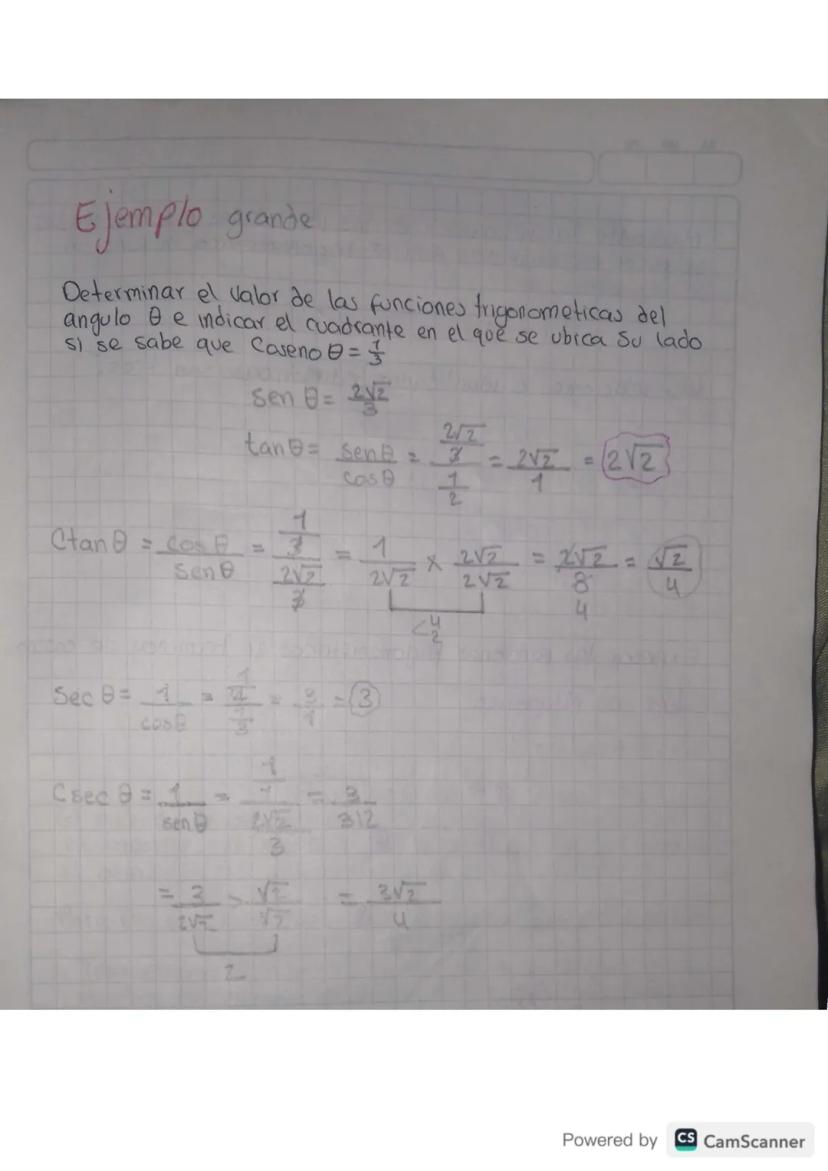 Ejemplo grande
Determinar el valor de las funciones trigonometicas del
angulo θ e indicar el cuadrante en el que se ubica su lado
si se sabe que Coseno θ = 1/3
sen θ = 2√2/3
tan θ = sen θ/cos θ = (2√2/3)/(1/2) = 2√2/1 = 2√2
Ctan θ = cos θ/sen θ = (1/3)/(2√2/3) = 1/2√2 × 2√2/2√2 = 2√2/8 = √2/4
4
Sec θ = 1/cos θ = = 3/1 = 3
Csec θ = 1/sen θ = (1/1)/(2√2/3) = 3/
= 3/2√2 √2/√2 = 3√2/4
2
Powered by CS CamScanner